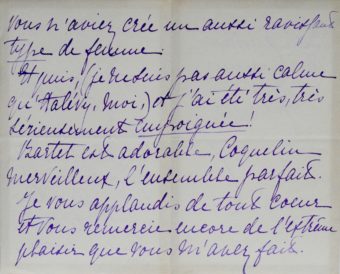 vous n'aviez crée un aussi ravissant
type de femme.
Et puis, (je ne suis pas aussi calme
qu'Halévy, moi,) et j'ai été très, très
sérieusement empoignée!
Bartet est adorable, Coquelin
merveilleux, l'ensemble parfait.
Je vous applaudis de tout coeur
et vous remercie encore de l'extrême
plaisir que vous m'avez fait.